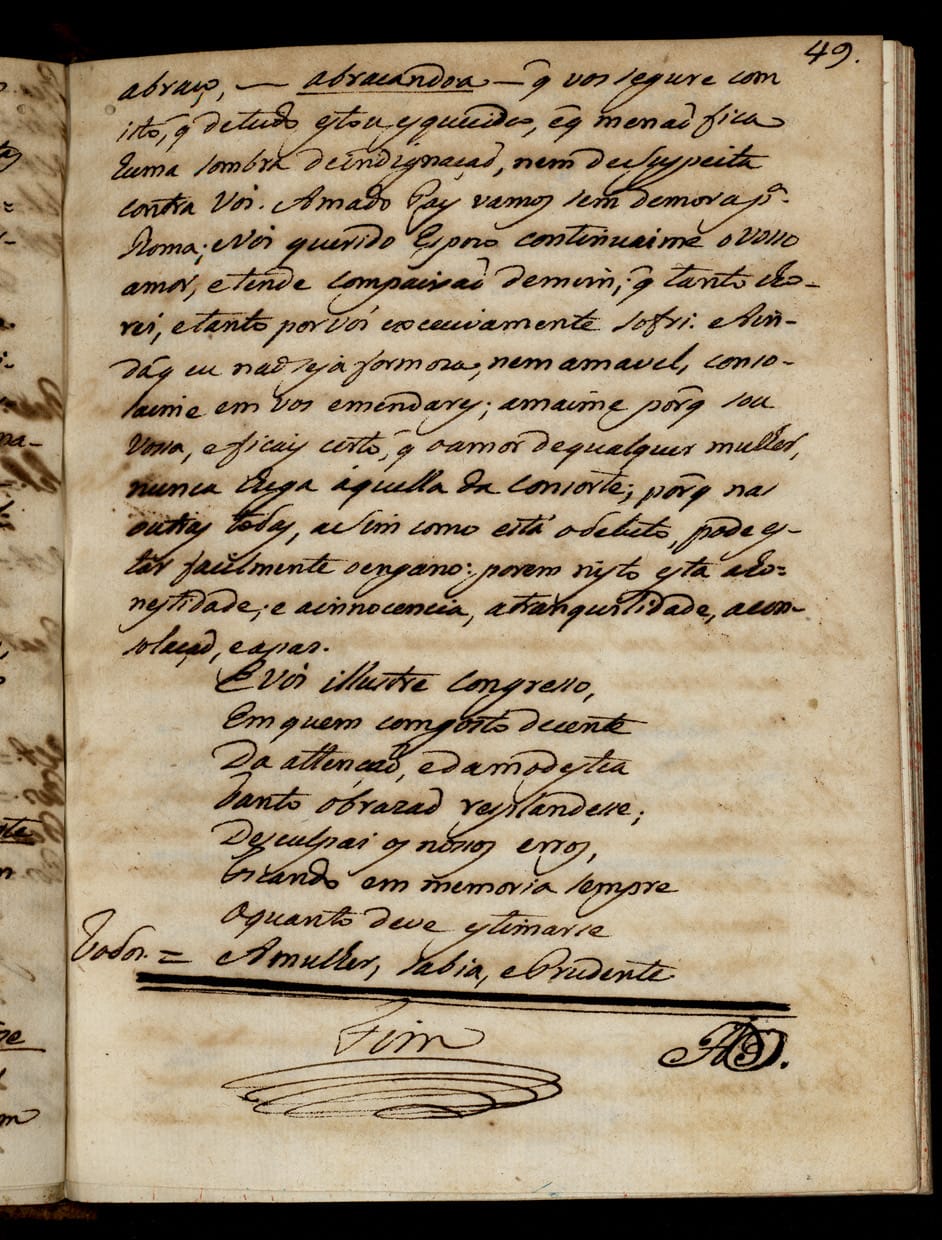 49.
abraço, — abraçandoa — q̃ vos segure com
isto, q̃ detudo estou esquecida, eq̃ menaõ fica
huma sombra deindignaçaõ, nem desuspeita
contra Vós. Amado Pay vamos sem demora pª.
Roma; eVós querido Esposo continuaime oVosso
amor, etende compaixaõ demim; q̃ tanto cho-
rei, etanto porvós excecivamente sofri. eAin-
dáq̃ eu naõ seja formoza, nem amavel, conso-
laime em vos emendares; amaime porq̃ sou
Vossa, eficais certo, q̃ oamor dequalquer mulher,
nunca chega áquella da consorte; porq̃ nas
outras todas, assim como está odelicto, pode es-
tár facilmente oengano: porem nisto esta aho=
nestidade; e ainnocencia, atranquilidade, acon-
solaçaõ, eapas.
E Vós illustre Congresso,
Em quem comgosto decente
Da attençaõ, edamodestia
Tanto óbrazaõ resplandesse;
Desculpai os nossos erros,
Ficando em memoria sempre
Oquanto deve estimarse
Todos. = Amulher, sabia, ePrudente.
Fim